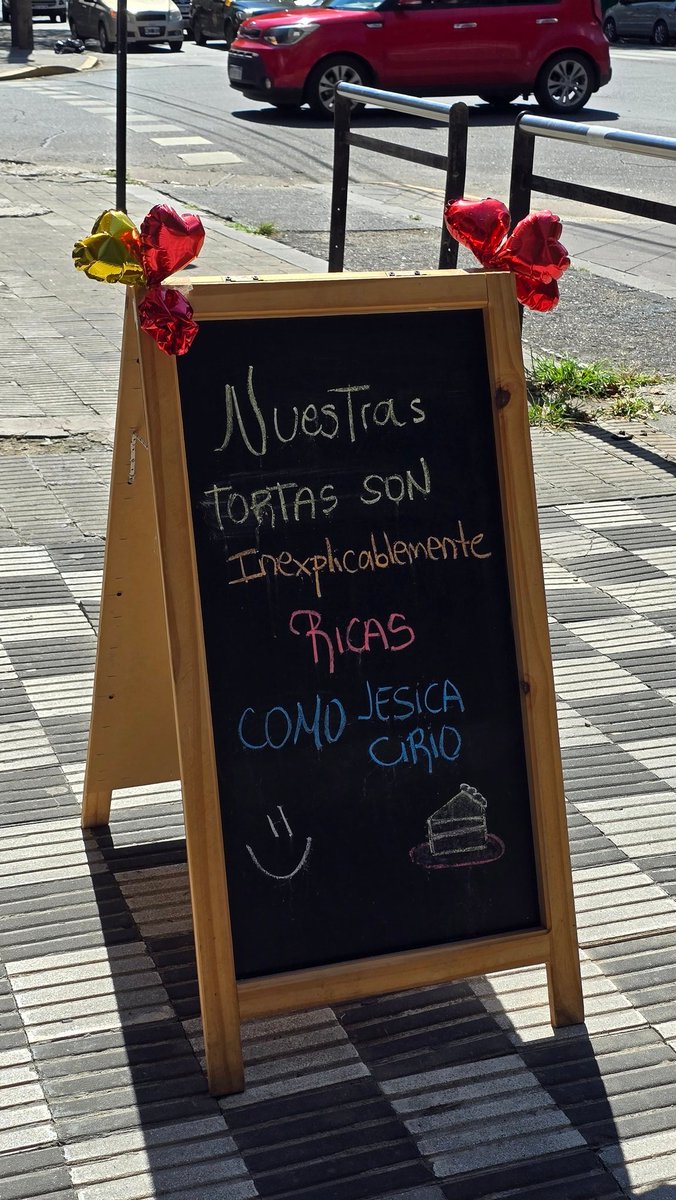 Nuestras
TORTAS SON
Inexplicablemente
RICAS
COMO JESICA
CIRIO